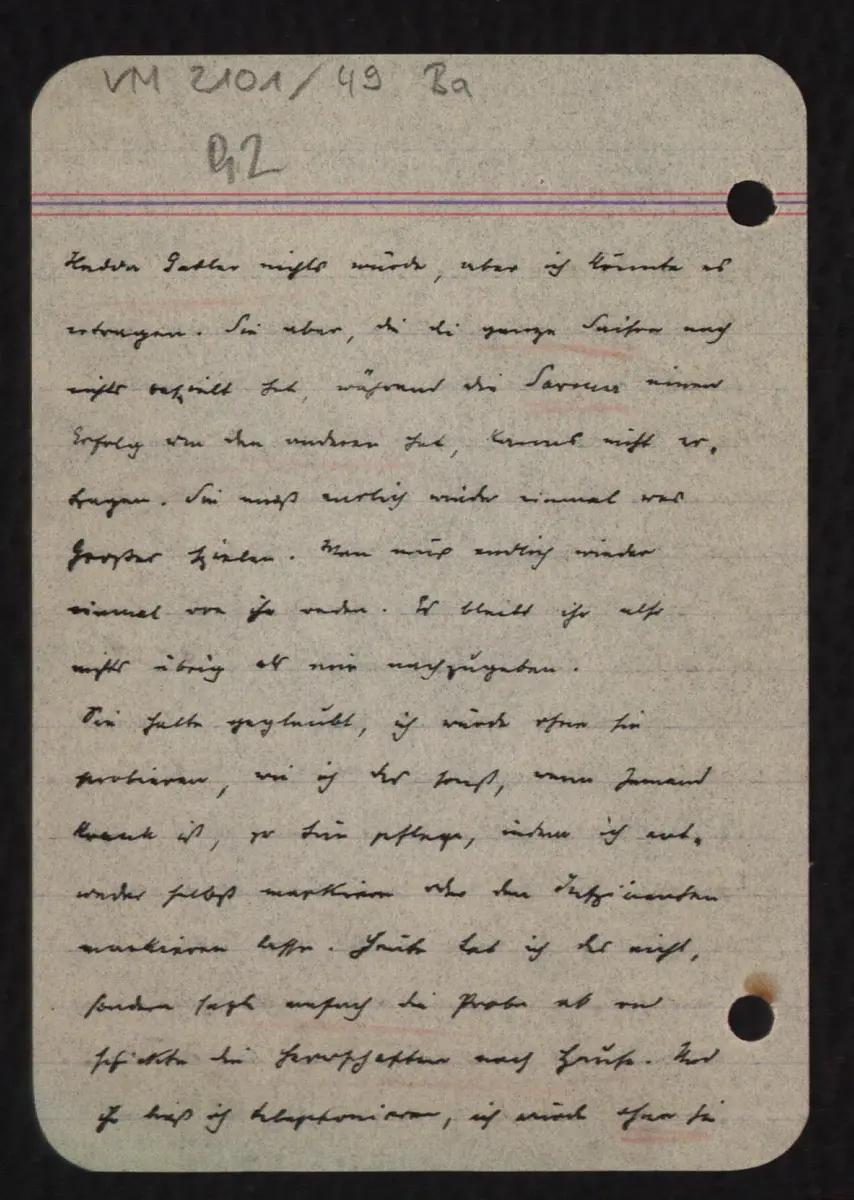 VM 2101/49 Ba
G2
Hedda Gabler nichts würde, aber ich könnte es
ertragen. Sie aber, die die ganze Saison noch
nichts gespielt hat, während die Sorma einen
Erfolg um den anderen hat, kanns nicht er-
tragen. Sie muß endlich wieder einmal was
Großes spielen. Man muß endlich wieder
einmal von ihr reden. Es bleibt ihr also
nichts übrig als mir nachzugeben.
Sie hatte geglaubt, ich würde ohne sie
probieren, wie ich das sonst, wenn Jemand
krank ist, zu tun pflege, indem ich ent-
weder selbst markiere oder den Inspizienten
markieren lasse. Heute tat ich das nicht,
sondern sagte einfach die Probe ab und
schickte die Herrschaften nach Hause. Und
ihr ließ ich telephonieren, ich würde ohne sie